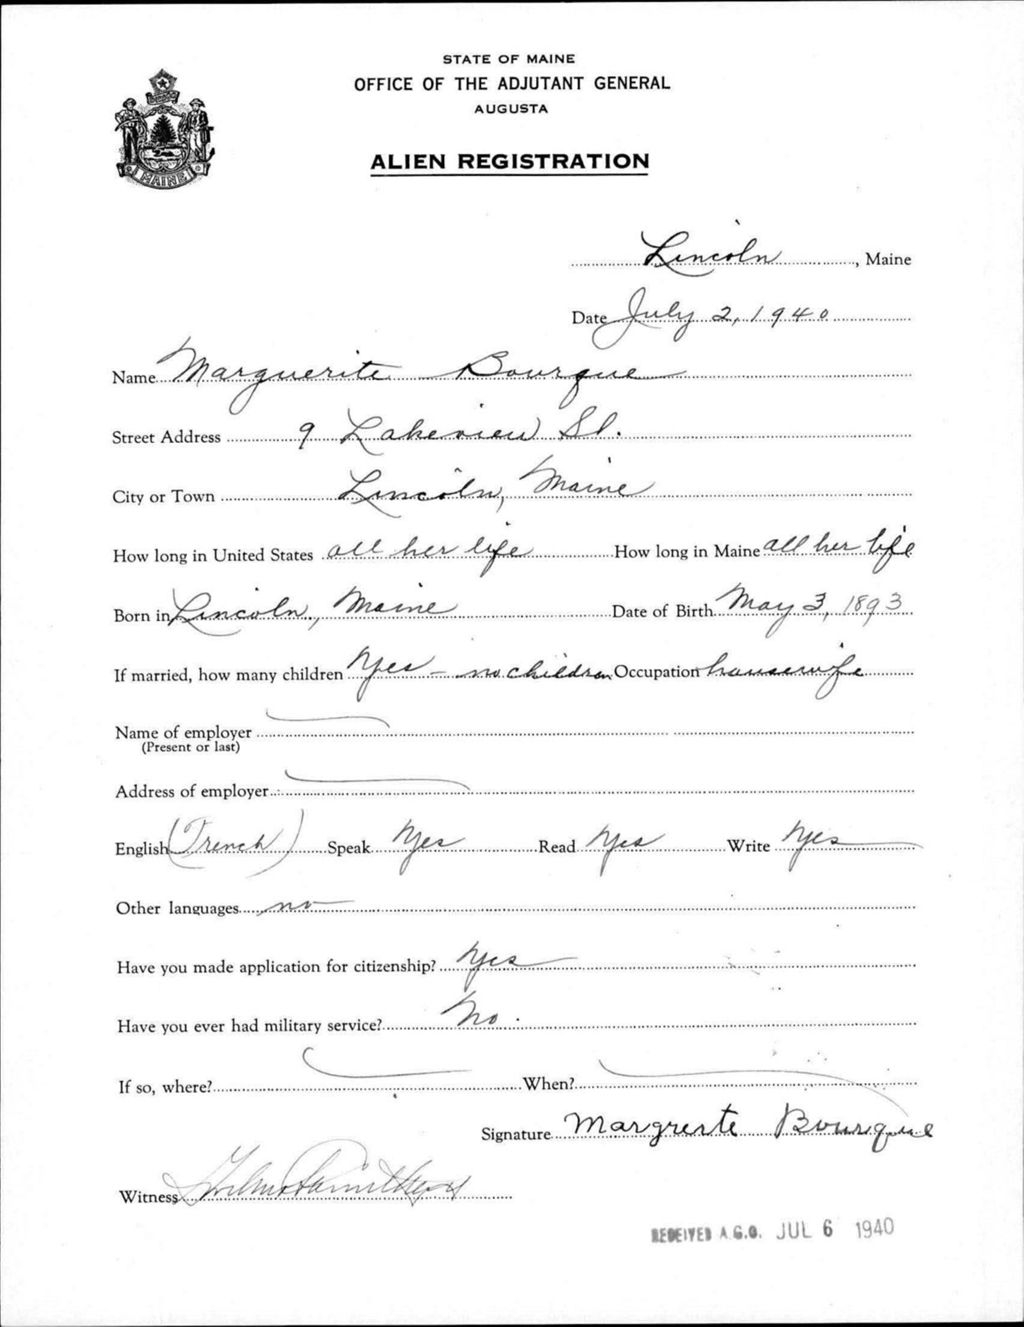 STATE OF MAINE
OFFICE OF THE ADJUTANT GENERAL
AUGUSTA
ALIEN REGISTRATION
MAINE
Lincoln, Maine
Date July 2, 1940
Name Marguerite Bourque
Street Address 9 Lakeview St.
City or Town Lincoln, Maine
How long in United States all her life How long in Maine all her life
Born in Lincoln, Maine Date of Birth May 3, 1893
If married, how many children Yes - no children Occupation housewife
Name of employer
(Present or last)
Address of employer
English (French) Speak Yes Read Yes Write Yes
Other languages no
Have you made application for citizenship? Yes
Have you ever had military service? No.
If so, where? When?
Signature Margreste Bourque
Witness
RECEIVED A.G.O. JUL 6 1940